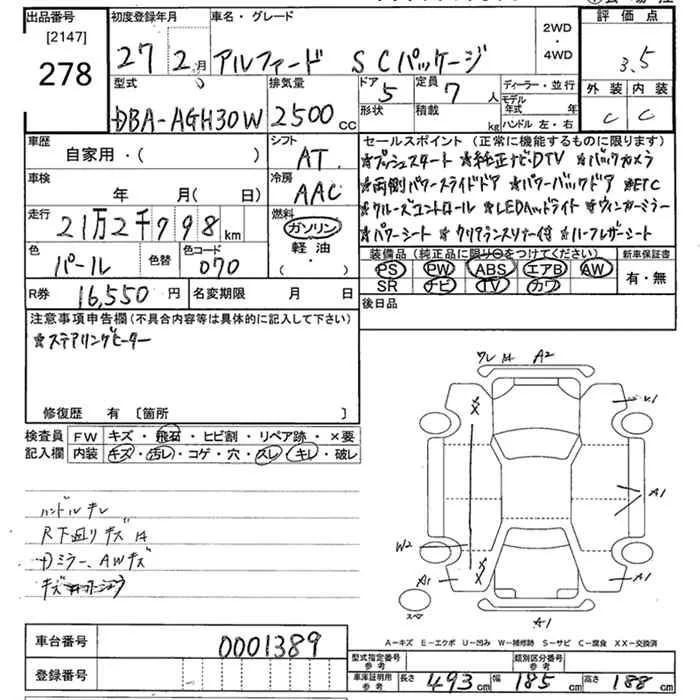 出品番号 初度登録年月 車名・グレード 2WD・4WD 評価点
[2147]
278 27年 2月 アルファード SCパッケージ 3.5
型式 排気量 ドア 5 定員 7人 ディーラー・並行 外装 内装
DBA-AGH30W 2500cc 形状 積載 kg モデル年式 年 C C
ハンドル 左・右
車歴 シフト セールスポイント (正常に機能するものに限ります)
自家用・( ) AT ☆プッシュスタート ☆純正ナビ・DTV ☆バックカメラ
車検 冷房 ☆両側パワースライドドア ☆パワーバックドア ☆ETC
年 月(日) AAC ☆クルーズコントロール ☆LEDヘッドライト ☆ウィンカーミラー
走行 燃料 ☆パワーシート ☆クリアランスソナー付 ☆ハーフレザーシート
21万2千998km ガソリン
軽油・( )
色 色替 色コード 装備品 (純正品に限り○をつけてください) 新車保証書
パール 070 PS PW ABS エアB AW 有・無
SR ナビ TV カワ
R券 16,550円 名変期限 月 日 後日品
注意事項申告欄 (不具合内容等は具体的に記入して下さい)
☆ステアリングヒーター
修復歴 有 [箇所 ]
検査員 FW キズ・飛石・ヒビ割・リペア跡・×要
記入欄 内装 キズ・汚レ・コゲ・穴・スレ・キレ・破レ
ハンドルキレ
R下廻りキズ
Dミラー、AWキズ
A2
XX
A1
W2
XX
A1
A1
A1
スペア
A-キズ E-エクボ U-凹み W-補修跡 S-サビ C-腐食 XX-交換済
車台番号 0001389
登録番号
型式指定番号 参考 類別区分番号 参考
車庫証明用 参考 長さ 493cm 幅 185cm 高さ 188cm